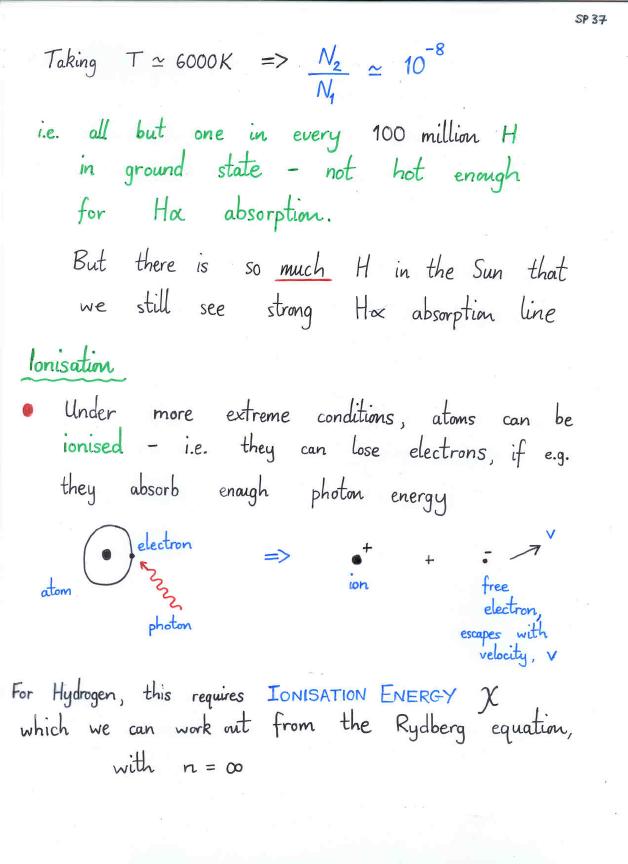 SP 37
Taking T ≃ 6000K => N₂/N₁ ≃ 10⁻⁸
i.e. all but one in every 100 million H
in ground state - not hot enough
for Hα absorption.
But there is so much H in the Sun that
we still see strong Hα absorption line
Ionisation
• Under more extreme conditions, atoms can be
ionised - i.e. they can lose electrons, if e.g.
they absorb enough photon energy
electron => + + - v
atom ion free
photon electron,
escapes with
velocity, v
For Hydrogen, this requires IONISATION ENERGY χ
which we can work out from the Rydberg equation,
with n = ∞